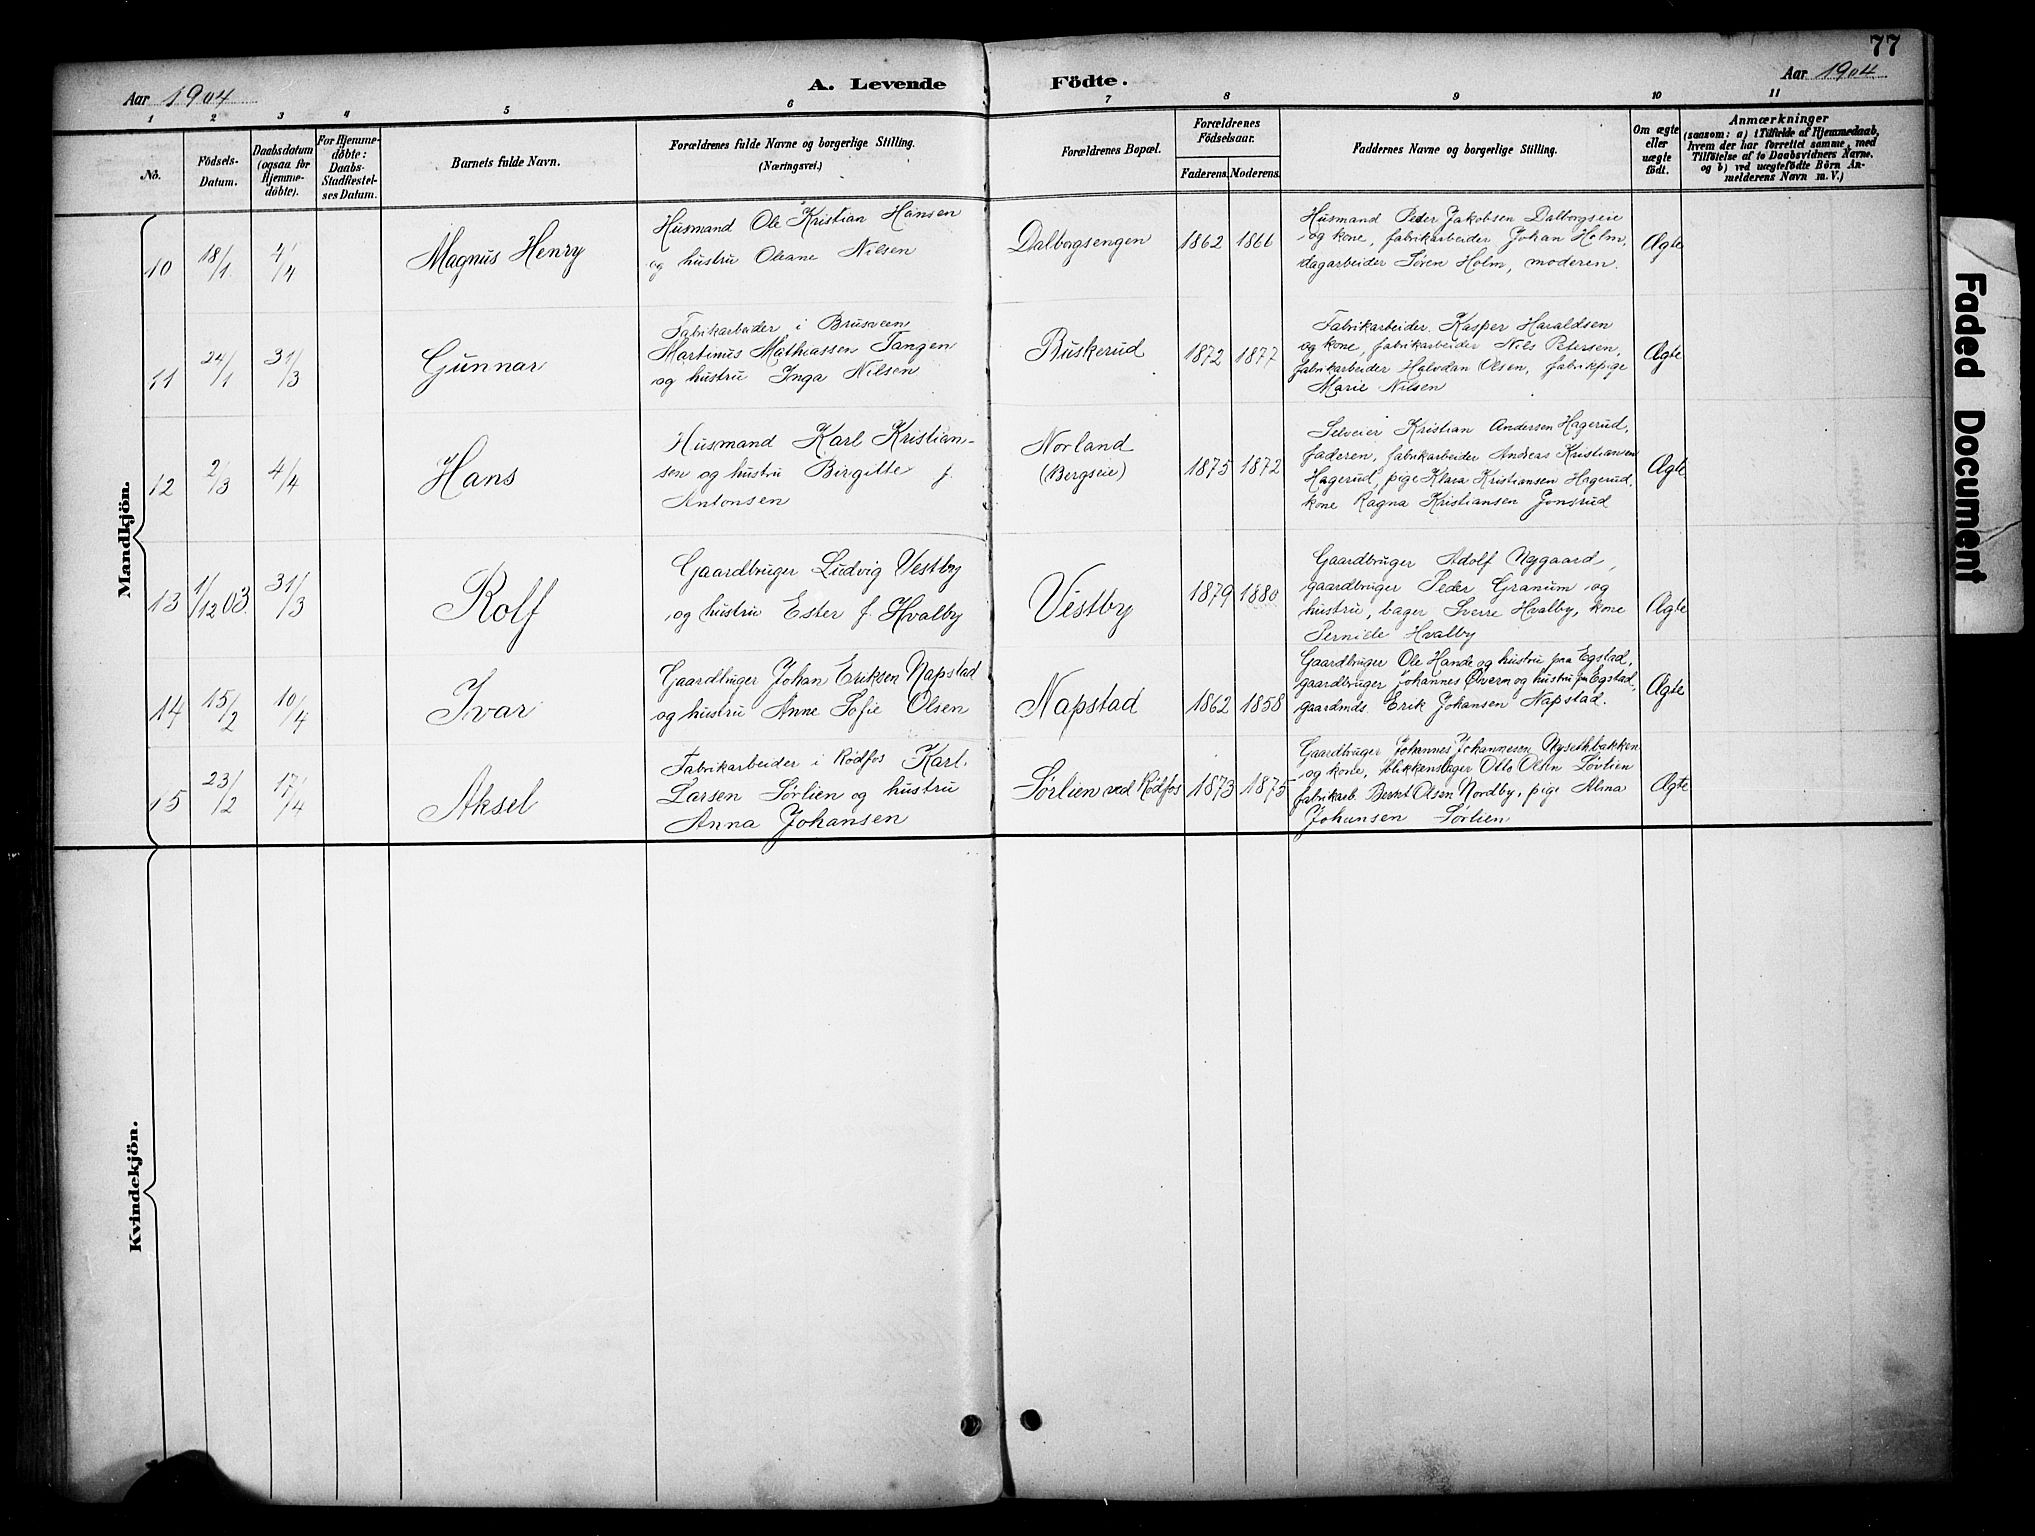 77
Aar 1904
A. Levende Födte.
Aar 1904
1 2 3 4 5 6 7 8 9 10 11
No.
Födsels-
Datum.
Daabsdatum
(ogsaa for
Hjemme-
döbte).
For Hjemme-
döbte:
Daabs-
Stadfæstel-
ses Datum.
Barnets fulde Navn.
Forældrenes fulde Navne og borgerlige Stilling.
(Næringsvei.)
Forældrenes Bopæl.
Forældrenes
Födselsaar.
Faderens. Moderens.
Faddernes Navne og borgerlige Stilling.
Om ægte
eller
uægte
födt.
Anmærkninger
(saasom: a) i Tilfælde af Hjemmedaab,
hvem der har forrettet samme, med
Tilföielse af to Daabsvidners Navne.
og b) ved uægtefödte Börn An-
melderens Navn m. V.)
Mandkjön.
10
18/1
4/4
Magnus Henry
Husmand Ole Kristian Hansen
og hustru Oleane Nilsen
Dalborgsengen
1862
1866
Husmand Peder Jakobsen Dalborgseie
og kone, fabrikarbeider Johan Holm,
dagarbeider Søren Holm, moderen.
Ægte
11
24/1
31/3
Gunnar
Fabrikarbeider i Brusveen
Martinus Mathiassen Tangen
og hustru Inga Nilsen
Buskerud
1872
1877
Fabrikarbeider Kasper Haraldsen
og kone, fabrikarbeider Nils Petersen,
fabrikarbeider Halvdan Olsen, fabrikpige
Marie Nilsen
Ægte
12
2/3
4/4
Hans
Husmand Karl Kristian-
sen og hustru Birgitte f.
Antonsen
Norland
(Bergseie)
1875
1872
Selveier Kristian Andersen Hagerud,
faderen, fabrikarbeider Andreas Kristiansen
Hagerud, pige Klara Kristiansen Hagerud,
kone Ragna Kristiansen Jonsrud
Ægte
13
1/12 03.
31/3
Rolf
Gaardbruger Ludvig Vestby
og hustru Ester f. Hvalby
Vestby
1879
1880
Gaardbruger Adolf Nygaard,
gaardbruger Peder Granum og
hustru, bager Sverre Hvalby, kone
Pernille Hvalby
Ægte
14
15/2
10/4
Ivar
Gaardbruger Johan Eriksen Napstad
og hustru Anne Sofie Olsen
Napstad
1862
1858
Gaardbruger Ole Hande og hustru paa Egstad,
gaardbruger Johannes Øvern og hustru fra Egstad,
gaardmds. Erik Johansen Napstad.
Ægte
15
23/2
17/4
Aksel
Fabrikarbeider i Rødfos Karl
Larsen Sørlien og hustru
Anna Johansen
Sørlien ved Rødfos
1873
1875
Gaardbruger Johannes Johannesen Nysethbakken
og kone, blikkenslager Otto Olsen Sørlien
fabrikarb. Bernt Olsen Nordby, pige Alma
Johansen Sørlien
Ægte
Kvindekjön.
Faded Document